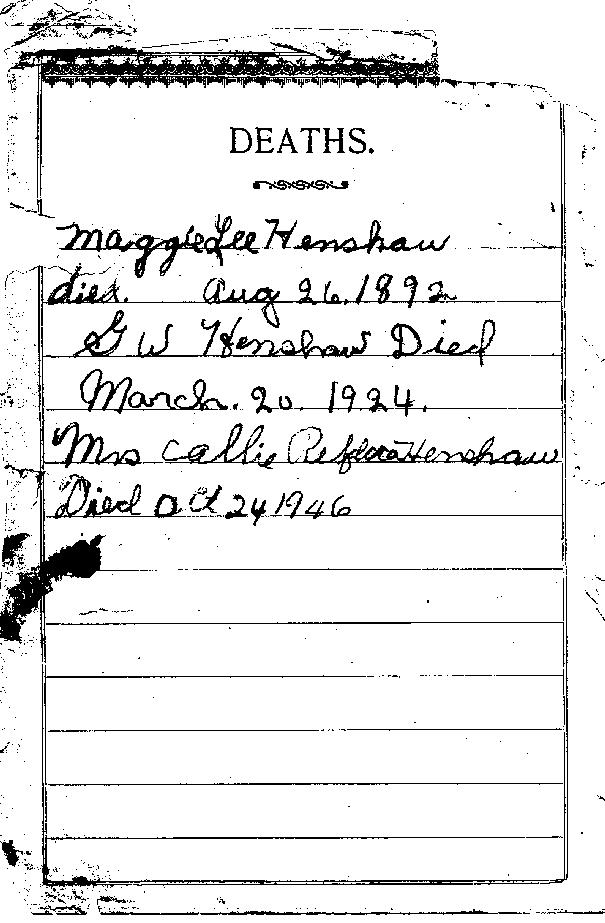 DEATHS.
Maggie Lee Henshaw
died. Aug 26, 1892
G W Henshaw Died
March. 20. 1924.
Mrs Callie Henshaw
Died Oct 24 1946